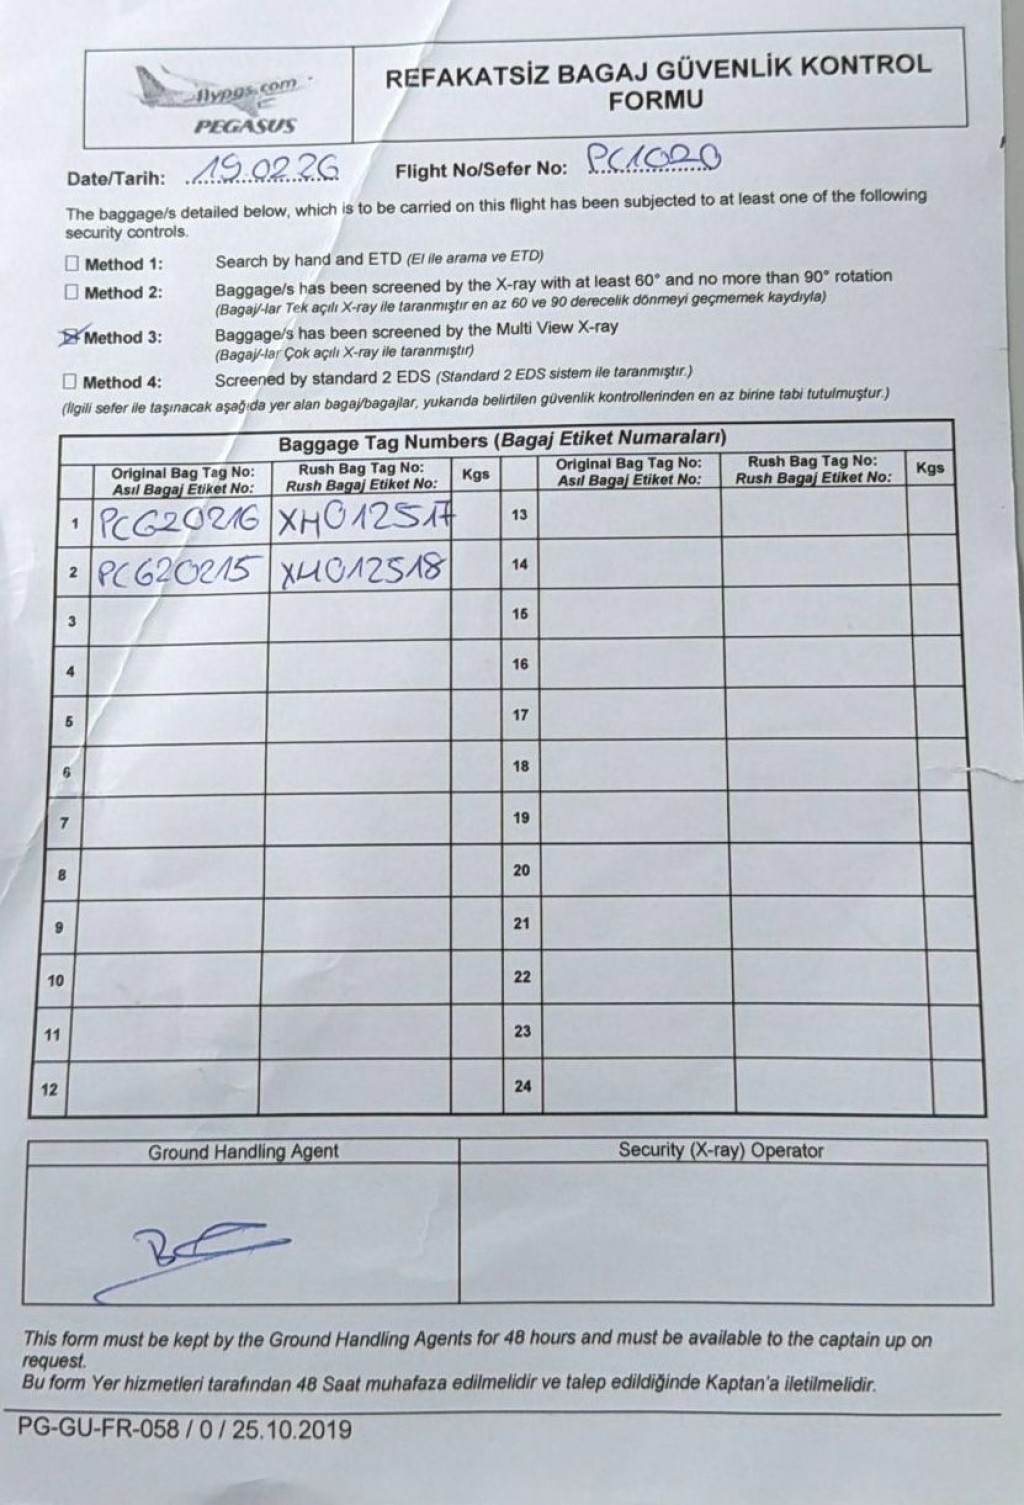 flypgs.com
PEGASUS
REFAKATSİZ BAGAJ GÜVENLİK KONTROL
FORMU
Date/Tarih: 19.02.26 Flight No/Sefer No: PC1020
The baggage/s detailed below, which is to be carried on this flight has been subjected to at least one of the following
security controls.
Method 1: Search by hand and ETD (El ile arama ve ETD)
Method 2: Baggage/s has been screened by the X-ray with at least 60° and no more than 90° rotation
(Bagaj/-lar Tek açılı X-ray ile taranmıştır en az 60 ve 90 derecelik dönmeyi geçmemek kaydıyla)
Method 3: Baggage/s has been screened by the Multi View X-ray
(Bagaj/-lar Çok açılı X-ray ile taranmıştır)
Method 4: Screened by standard 2 EDS (Standard 2 EDS sistem ile taranmıştır.)
(İlgili sefer ile taşınacak aşağıda yer alan bagaj/bagajlar, yukarıda belirtilen güvenlik kontrollerinden en az birine tabi tutulmuştur.)
Baggage Tag Numbers (Bagaj Etiket Numaraları)
Original Bag Tag No: Rush Bag Tag No: Kgs Original Bag Tag No: Rush Bag Tag No: Kgs
Asıl Bagaj Etiket No: Rush Bagaj Etiket No: Asıl Bagaj Etiket No: Rush Bagaj Etiket No:
1 PC620216 XH012517 13
2 PC620215 XH012518 14
3 15
4 16
5 17
6 18
7 19
8 20
9 21
10 22
11 23
12 24
Ground Handling Agent Security (X-ray) Operator
This form must be kept by the Ground Handling Agents for 48 hours and must be available to the captain up on
request.
Bu form Yer hizmetleri tarafından 48 Saat muhafaza edilmelidir ve talep edildiğinde Kaptan'a iletilmelidir.
PG-GU-FR-058 / 0 / 25.10.2019